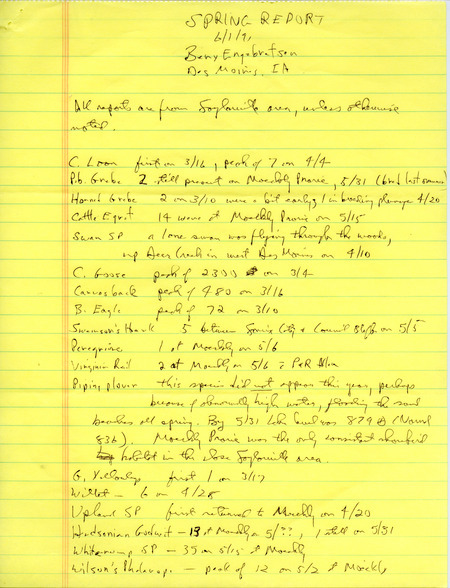 SPRING REPORT
6/1/91
Bery Engebretsen
Des Moines, IA
All reports are from Saylorville area, unless otherwise
noted.
C. Loon first on 3/16, peak of 7 on 4/4
P.b. Grebe 2 still present on Moeckly Prairie, 5/31 (bred last summer)
Horned Grebe 2 on 3/10 were a bit early; 1 in breeding plumage 4/20
Cattle Egret 14 were at Moeckly Prairie on 5/15
Swan SP a lone swan was flying through the woods,
up Beaver Creek in west Des Moines on 4/10
C. Goose peak of 2300 on 3/4
Canvasback peak of 480 on 3/16
B. Eagle peak of 72 on 3/10
Swainson's Hawk 5 between Sioux City & Council Bluffs on 5/5
Peregrine 1 at Moeckly on 5/6
Virginia Rail 2 at Moeckly on 5/6
Piping plover this species did not appear this year, perhaps
because of abnormally high water, flooding the sand
beaches all spring. By 5/31 lake level was 879 (Normal
836). Moeckly Prairie was the only consistent shorebird
habitat in the close Saylorville area.
G. Yellowlegs first 1 on 3/17
Willet - 6 on 4/28
Upland SP first returned to Moeckly on 4/20
Hudsonian Godwit - 13 at Moeckly on 5/??, 1 still on 5/31
Whiterump SP - 35 on 5/15 at Moeckly
Wilson's Phalarope - peak of 12 on 5/2 at Moeckly